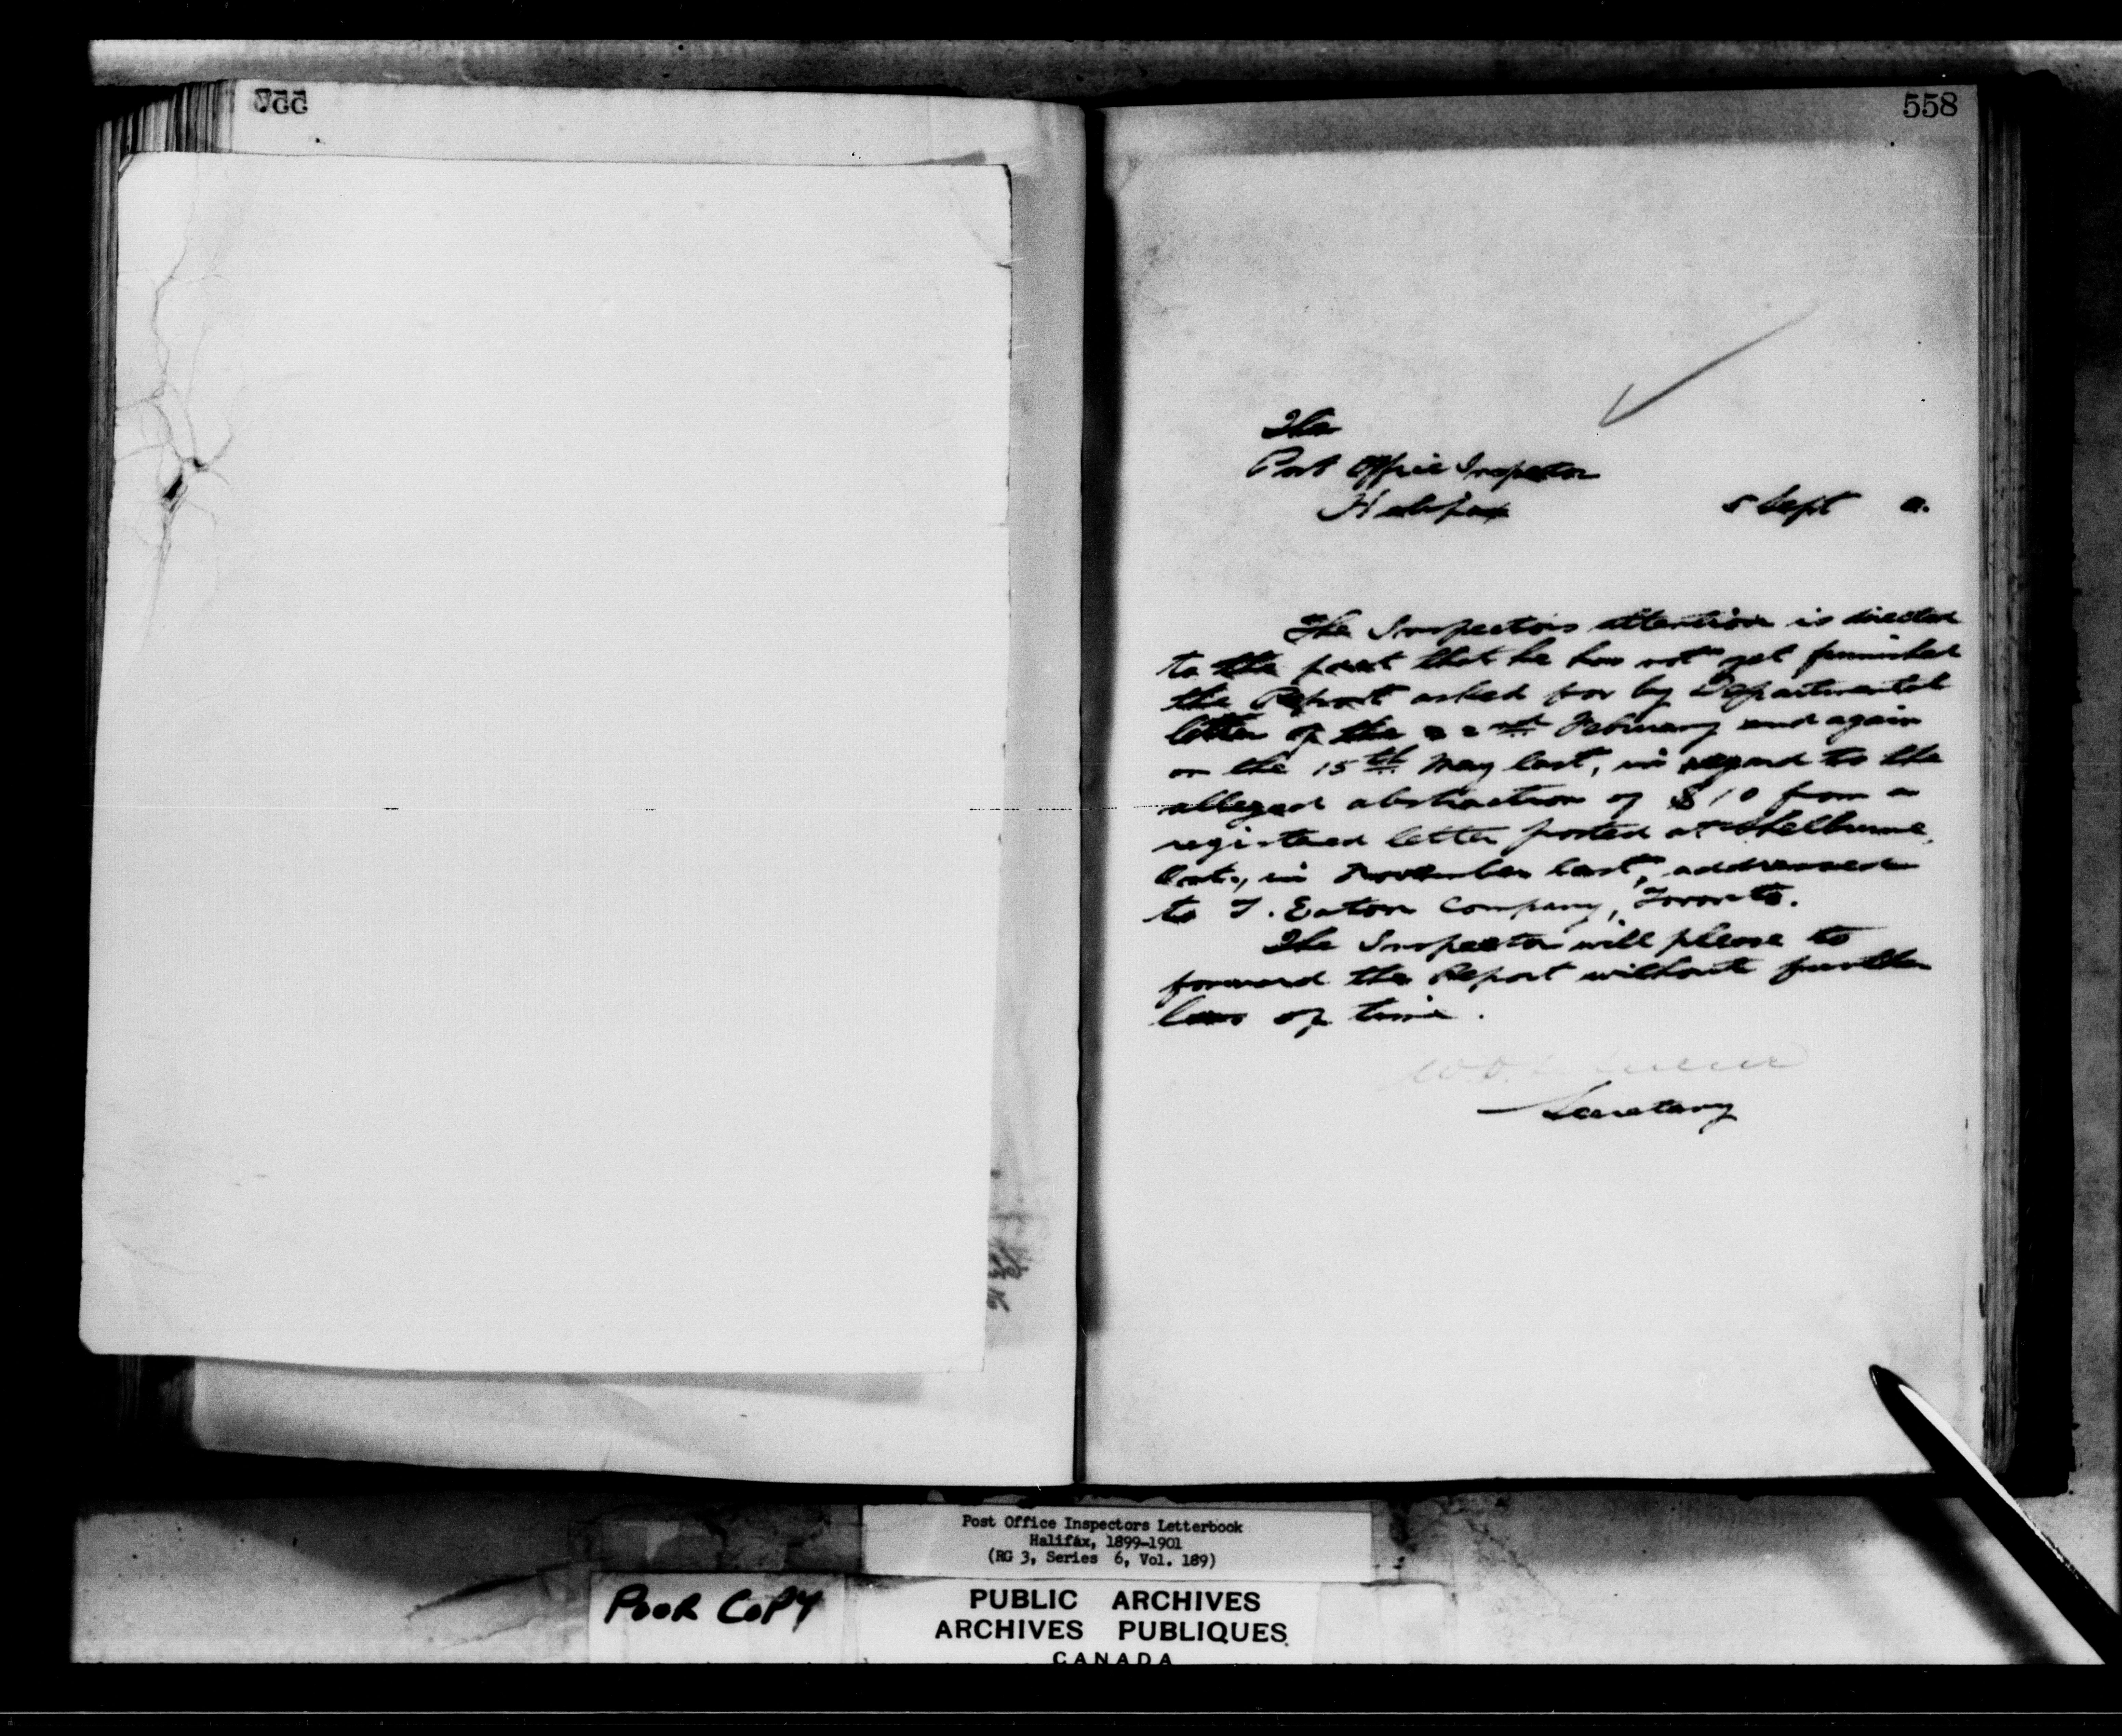 558
The
Post Office Inspector
Halifax 5 Sept 0.
The Inspectors attention is directed
to the fact that he has not yet furnished
the Report asked for by Departmental
letter of the 22nd February and again
on the 15th May last, in regard to the
alleged abstraction of $10 from a
registered letter posted at Shelburne,
Ont., in November last, addressed
to T. Eaton Company, Toronto.
The Inspector will please to
forward the Report without further
loss of time.
Secretary
Post Office Inspectors Letterbook
Halifax, 1899-1901
(RG 3, Series 6, Vol. 189)
POOR COPY
PUBLIC ARCHIVES
ARCHIVES PUBLIQUES
CANADA